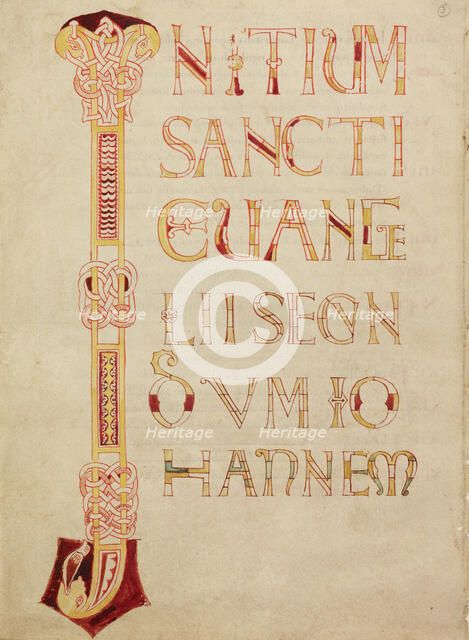 3
INITIUM
SANCTI
EUANGE
LII SECUN
DVM IO
HANNEM
Heritage Heritage
Heritage Heritage
Heritage Heritage
©